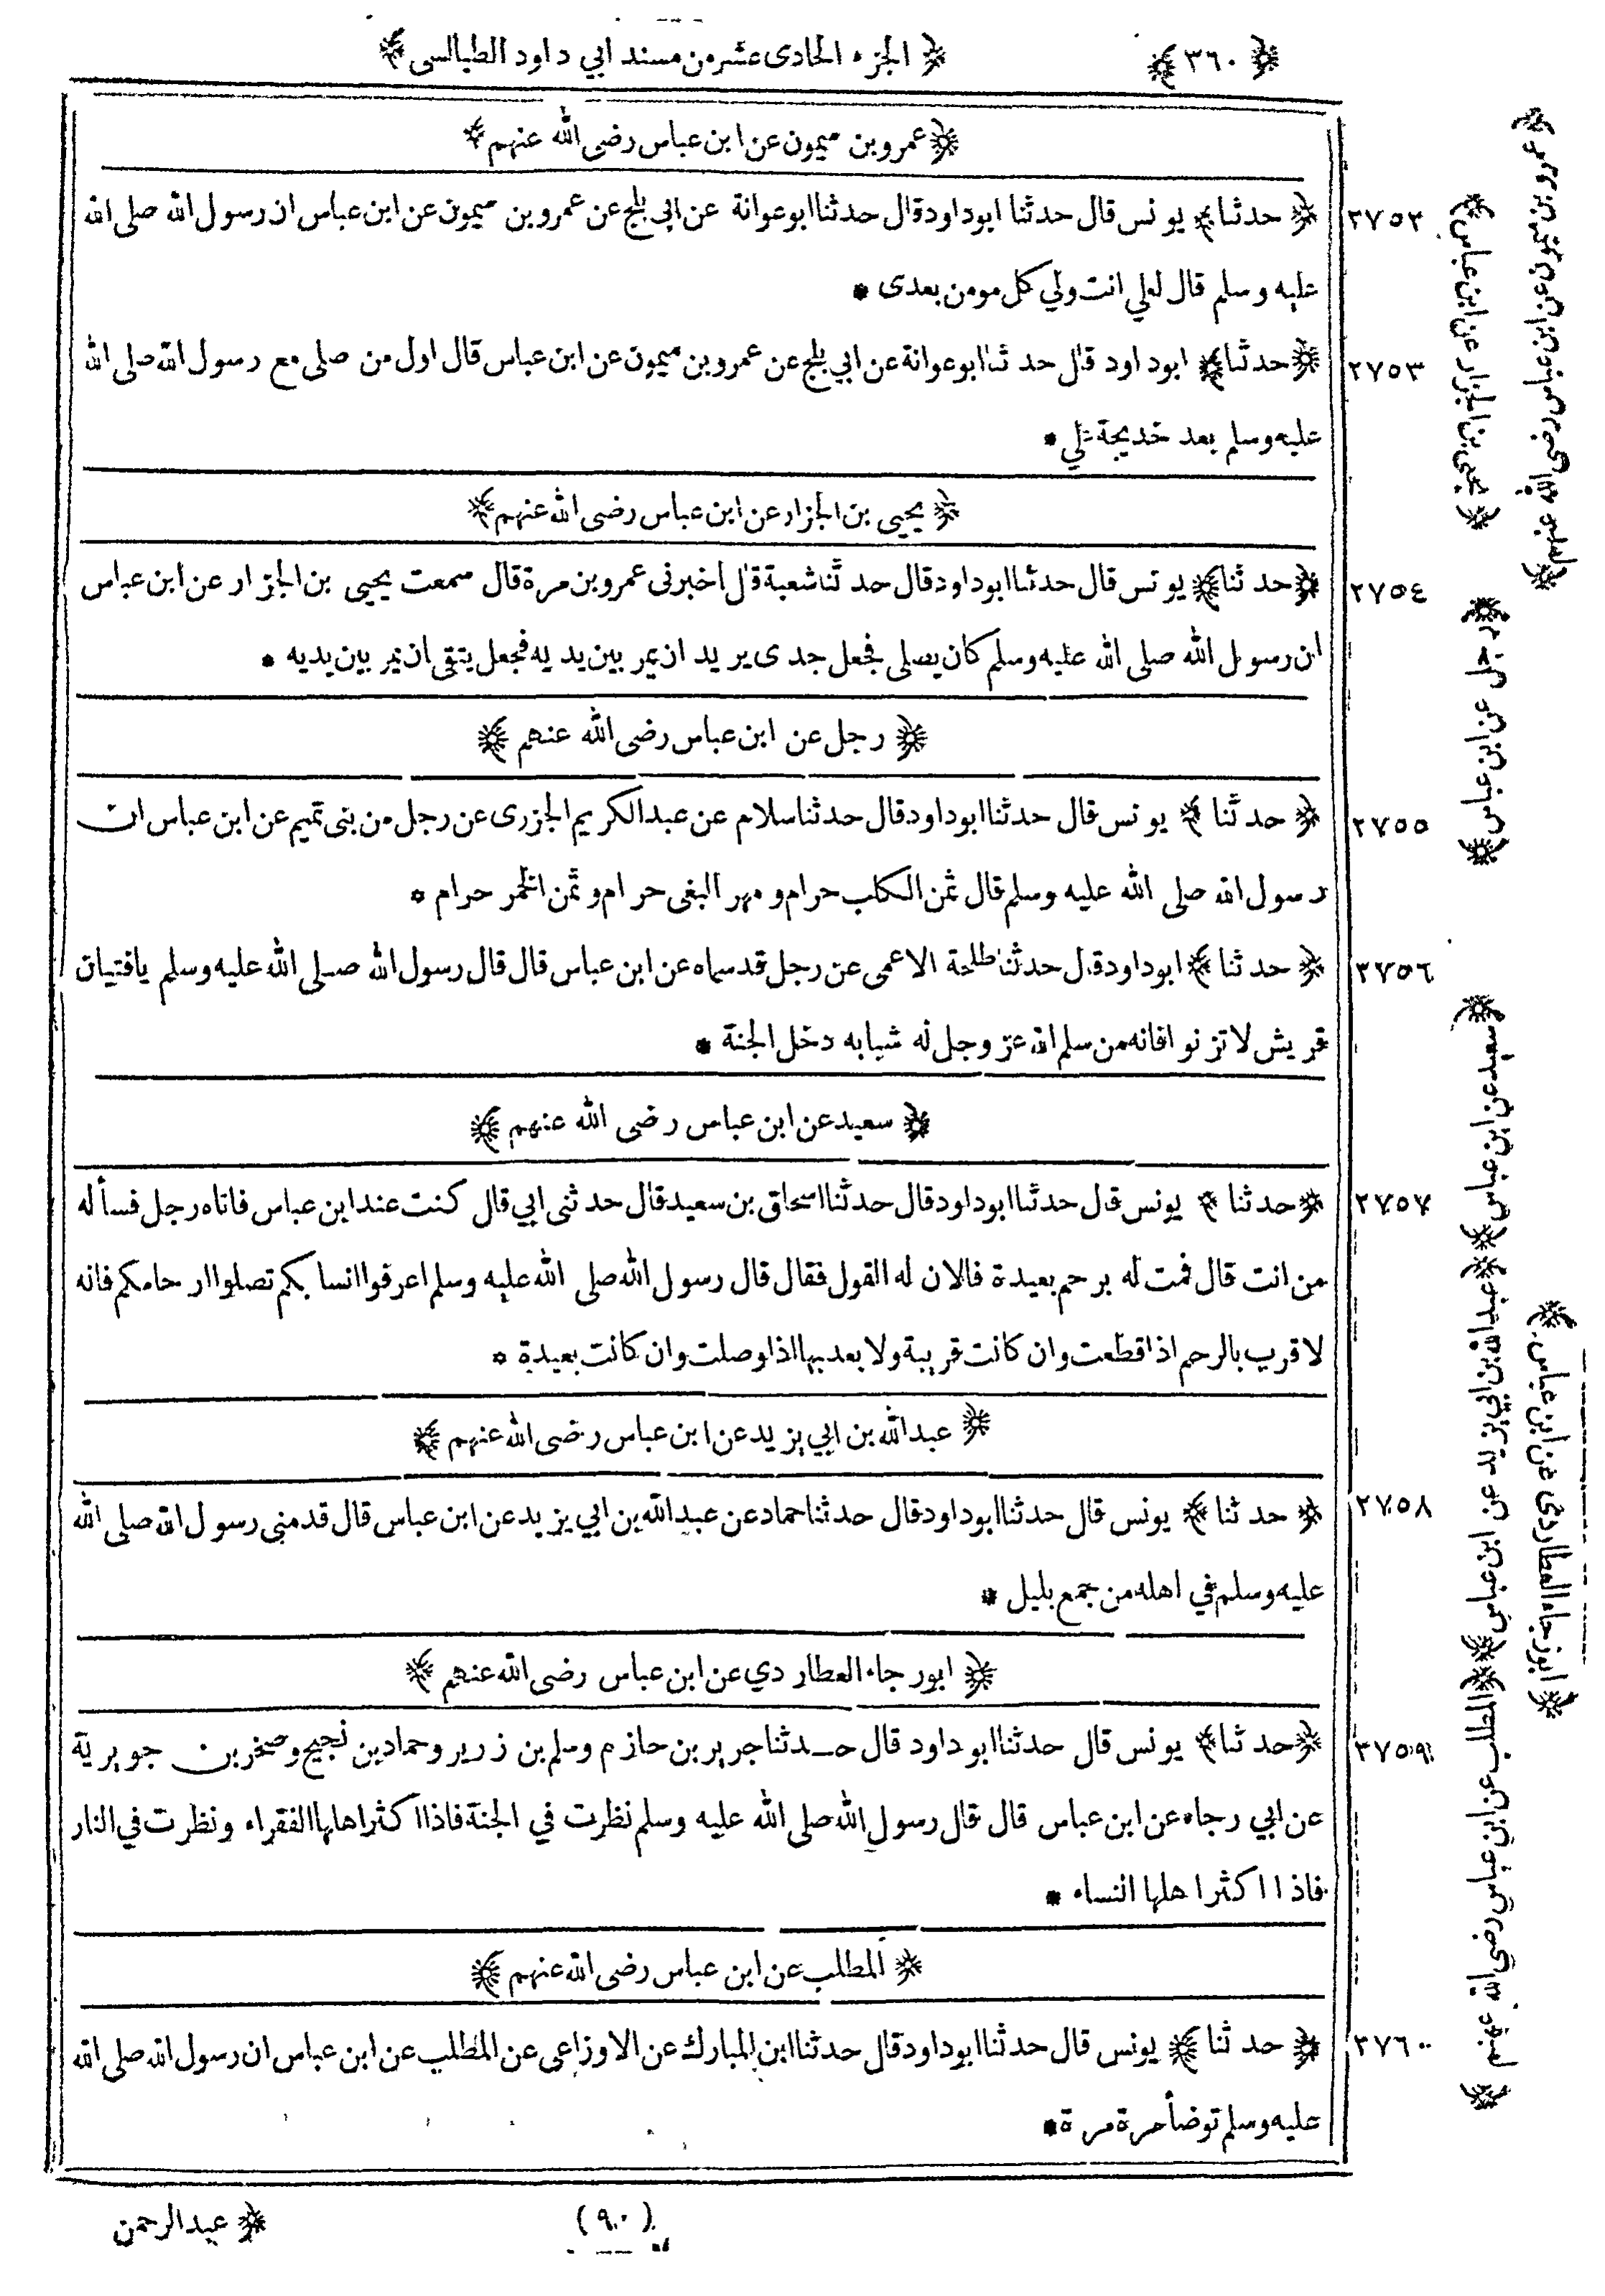 ﴿ ٣٦٠ ﴾ ﴿ الجزء الحادى عشر من مسند ابي داود الطيالسى ﴾
﴿ عمرو بن ميمون عن ابن عباس رضى الله عنهم ﴾
٢٧٥٢ ﴿ حدثنا ﴾ يونس قال حدثنا ابو داود قال حدثنا ابو عوانة عن ابى بلج عن عمرو بن ميمون عن ابن عباس ان رسول الله صلى الله
عليه وسلم قال لعلي انت ولي كل مومن بعدى *
٢٧٥٣ ﴿ حدثنا ﴾ ابو داود قال حدثنا ابو عوانة عن ابي بلج عن عمرو بن ميمون عن ابن عباس قال اول من صلى مع رسول الله صلى الله
عليه وسلم بعد خديجة علي *
﴿ يحيى بن الجزار عن ابن عباس رضى الله عنهم ﴾
٢٧٥٤ ﴿ حدثنا ﴾ يونس قال حدثنا ابو داود قال حدثنا شعبة قال اخبرنى عمرو بن مرة قال سمعت يحيى بن الجزار عن ابن عباس
ان رسول الله صلى الله عليه وسلم كان يصلى فجعل جدى يريد ان يمر بين يديه فجعل يتقى ان يمر بين يديه *
﴿ رجل عن ابن عباس رضى الله عنهم ﴾
٢٧٥٥ ﴿ حدثنا ﴾ يونس قال حدثنا ابو داود قال حدثنا سلام عن عبد الكريم الجزرى عن رجل من بنى تميم عن ابن عباس ان
رسول الله صلى الله عليه وسلم قال ثمن الكلب حرام و مهر البغى حرام و ثمن الخمر حرام *
٢٧٥٦ ﴿ حدثنا ﴾ ابو داود قال حدثنا طلحة الاعمى عن رجل قد سماه عن ابن عباس قال قال رسول الله صلى الله عليه وسلم يا فتيان
قريش لا تزنوا فانه من سلم الله عز وجل له شبابه دخل الجنة *
﴿ سعيد عن ابن عباس رضى الله عنهم ﴾
٢٧٥٧ ﴿ حدثنا ﴾ يونس قال حدثنا ابو داود قال حدثنا اسحاق بن سعيد قال حدثنى ابي قال كنت عند ابن عباس فاتاه رجل فسأله
من انت قال فمت له برحم بعيدة فالان له القول فقال قال رسول الله صلى الله عليه وسلم اعرفوا انسابكم تصلوا ارحامكم فانه
لا قرب بالرحم اذا قطعت وان كانت قريبة ولا بعد بها اذا وصلت وان كانت بعيدة *
﴿ عبد الله بن ابي يزيد عن ابن عباس رضى الله عنهم ﴾
٢٧٥٨ ﴿ حدثنا ﴾ يونس قال حدثنا ابو داود قال حدثنا حماد عن عبد الله بن ابي يزيد عن ابن عباس قال قدمنى رسول الله صلى الله
عليه وسلم في اهله من جمع بليل *
﴿ ابو رجاء العطاردي عن ابن عباس رضى الله عنهم ﴾
٢٧٥٩ ﴿ حدثنا ﴾ يونس قال حدثنا ابو داود قال حدثنا جرير بن حازم وسلم بن زرير وحماد بن نجيح وصخر بن جويرية
عن ابي رجاء عن ابن عباس قال قال رسول الله صلى الله عليه وسلم نظرت في الجنة فاذا اكثر اهلها الفقراء ونظرت في النار
فاذا اكثر اهلها النساء *
﴿ المطلب عن ابن عباس رضى الله عنهم ﴾
٢٧٦٠ ﴿ حدثنا ﴾ يونس قال حدثنا ابو داود قال حدثنا ابن المبارك عن الاوزاعى عن المطلب عن ابن عباس ان رسول الله صلى الله
عليه وسلم توضأ مرة مرة *
﴿ يحيى بن الجزار عن ابن عباس ﴾
﴿ رجل عن ابن عباس ﴾
﴿ سعيد عن ابن عباس ﴾
﴿ عبد الله بن ابي يزيد عن ابن عباس ﴾
﴿ ابو رجاء العطاردي عن ابن عباس ﴾
﴿ المطلب عن ابن عباس رضى الله عنهم ﴾
(٩٠)
﴿ عبد الرحمن